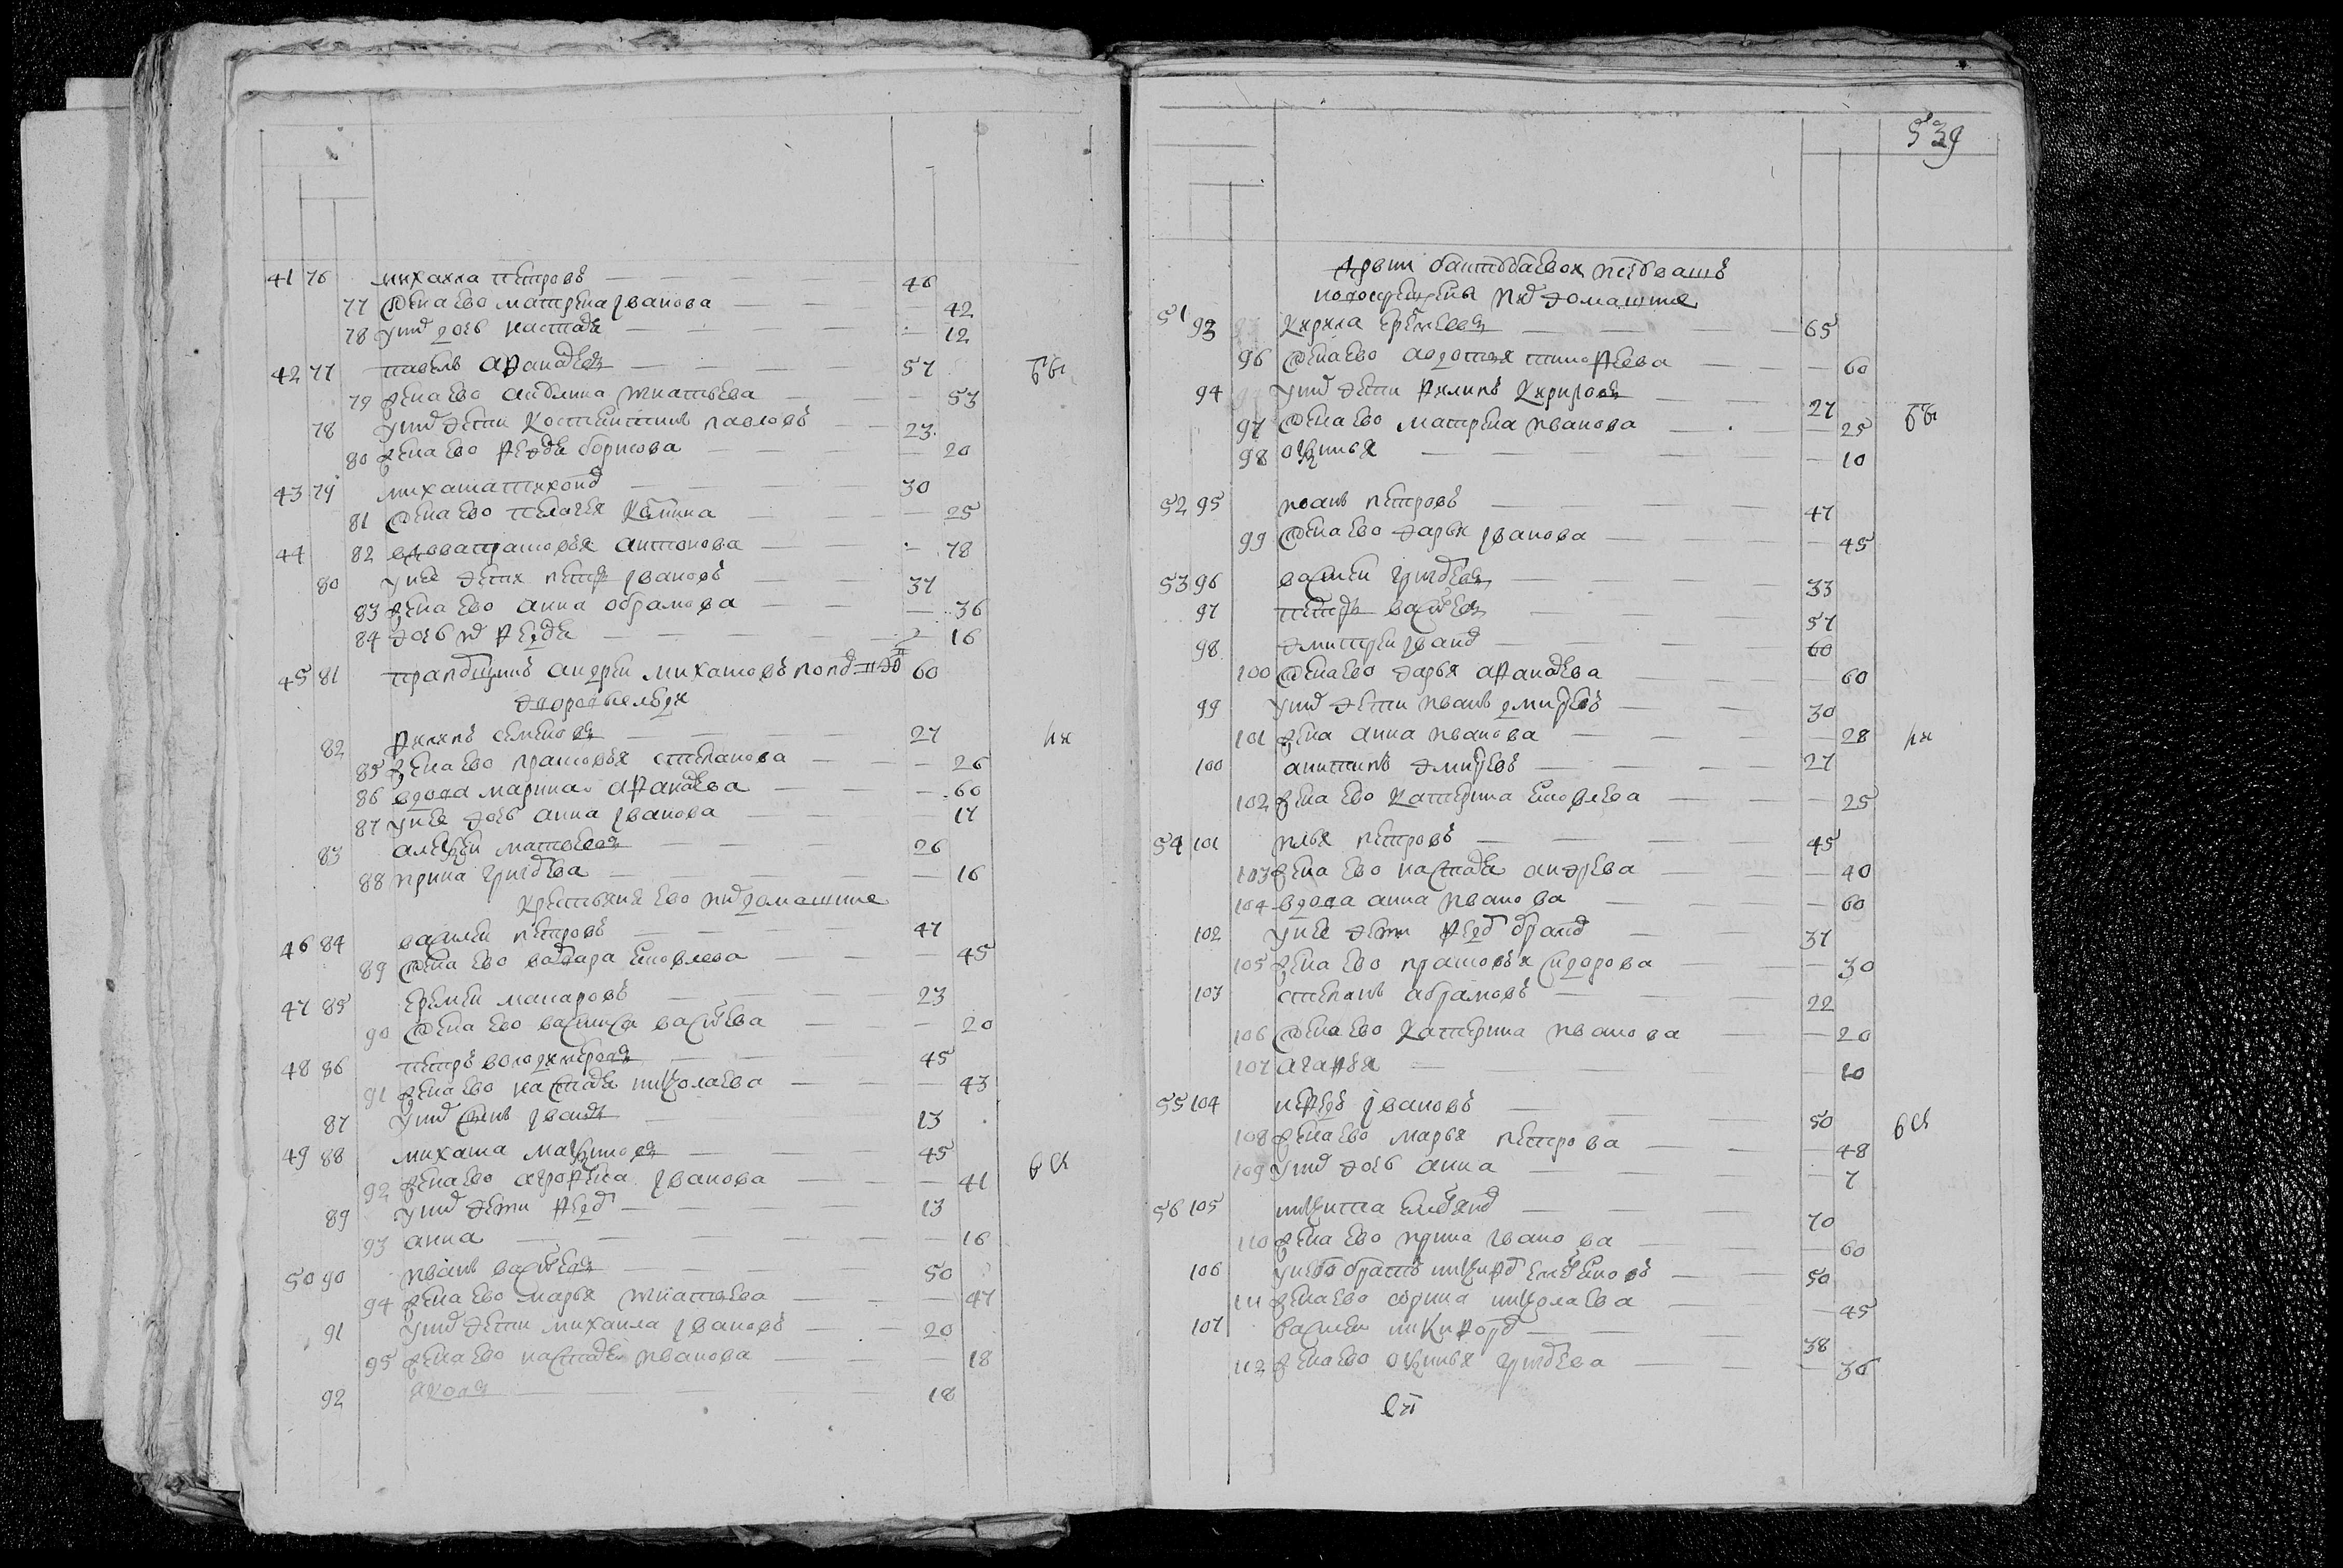 41 76 михаила петровъ 46
77 жена ево матрена иванова 42
78 у них дочь настасья 12
42 77 павелъ афанасьевъ 57 бы
79 жена ево акулина игнатьева 53
78 у них дети костентинъ павловъ 23
80 жена ево федосья борисова 20
43 79 михаила тихонов 30
81 жена ево пелагея 25
44 82 вдова прасковья антонова 78
80 у нее дети петръ ивановъ 37
83 жена ево анна обрамова 36
84 дочь их федосья 16
45 81 андрей михаиловъ 60
82 филипъ семеновъ 27 ли
85 жена ево прасковья степанова 26
86 вдова марина афанасьева 60
87 у нее дочь анна иванова 17
83 алексей матвеевъ 26
88 ирина григорьева 16
крестьяня ево и их домашние
46 84 василей петровъ 47
89 жена ево варвара яковлева 45
47 85 еремей макаровъ 23
90 жена ево василиса васильева 20
48 86 петръ володимеровъ 45
91 жена ево настасья николаева 43
87 у них сынъ иванъ 13
49 88 михаила максимовъ 45 вс
92 жена ево аграфена иванова 41
89 у них дети федор 13
93 анна 16
50 90 иванъ васильевъ 50
94 жена ево марья игнатьева 47
91 у них дети михаила ивановъ 20
95 жена ево настасья иванова 18
92 яковъ 18
539
и их домашние
51 93 кирила еремеевъ 65
96 жена ево авдотья тимофеева 60
94 у них дети филипъ кириловъ 27
97 жена ево матрена иванова 25 бы
98 оксинья 10
52 95 иванъ петровъ 47
99 жена ево дарья иванова 45
53 96 василей григорьевъ 33
97 петръ васильевъ 57
98 дмитрей иванов 60
100 жена ево дарья афанасьева 60
99 у них дети иванъ дмитревъ 30
101 жена анна иванова 28 ли
100 антипъ дмитревъ 27
102 жена ево катерина яковлева 25
54 101 илья петровъ 45
103 жена ево настасья андреева 40
104 вдова анна иванова 60
102 у нее дети федор 37
105 жена ево прасковья сидорова 30
103 степанъ абрамовъ 22
106 жена ево катерина иванова 20
107 агафья 10
55 104 нефедъ ивановъ 50
108 жена ево марья петрова 48 вс
109 у них дочь анна 7
56 105 никита емельянов 70
110 жена ево ирина иванова 60
106 у него братъ никифор емельяновъ 50
111 жена ево николаева 45
107 василей никифоров 38
112 жена ево оксинья григорьева 36